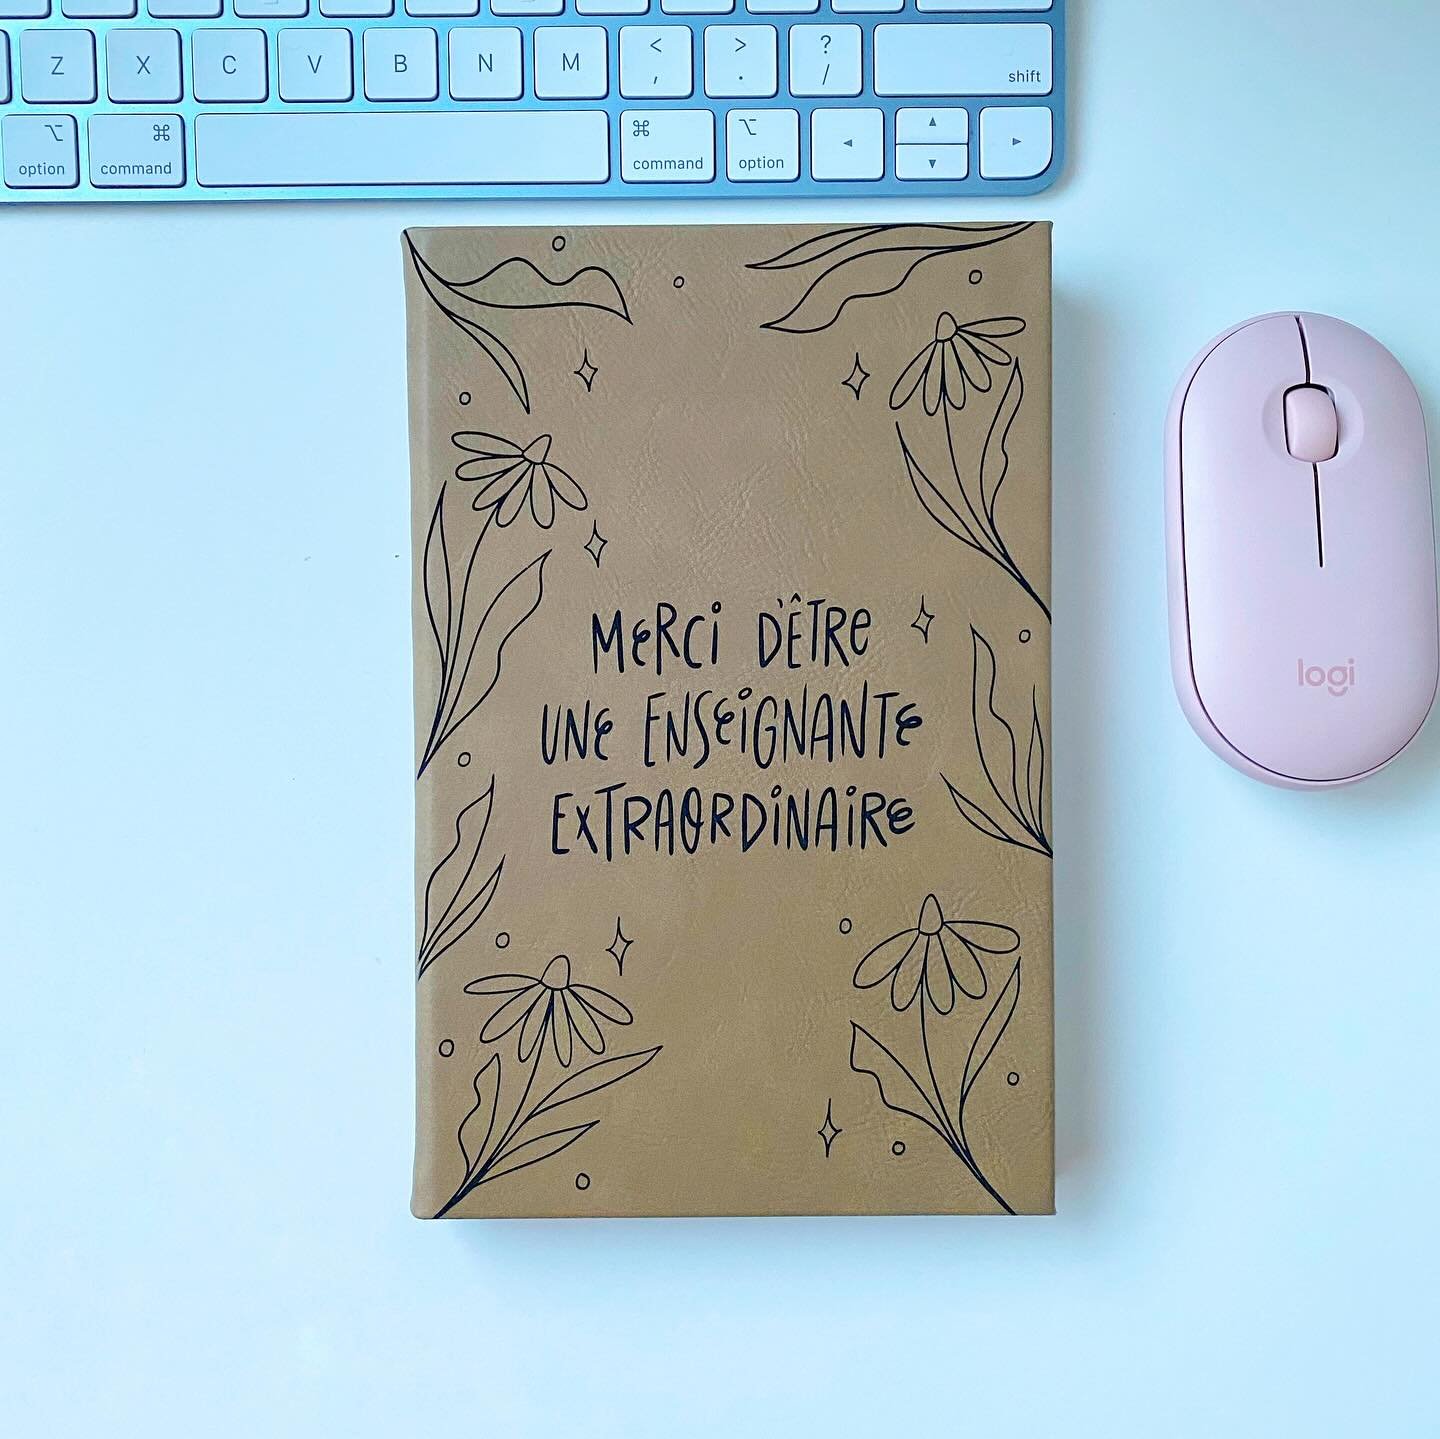 Z X C V B N M < , > . ? / shift
⌥ option ⌘ command ⌘ command ⌥ option ◂ ▴ ▾ ▸
MERCI D'ÊTRE
UNE ENSEIGNANTE
EXTRAORDINAIRE
logi